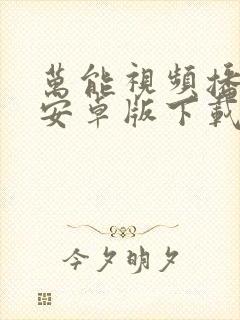 萬能視頻播
安卓版下載
今夕明夕